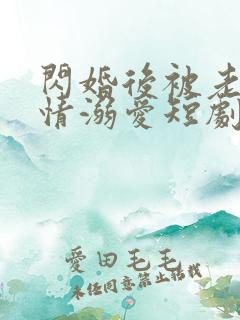 閃婚後被老
情溺愛短劇
愛田毛毛
未經同意禁止搭載